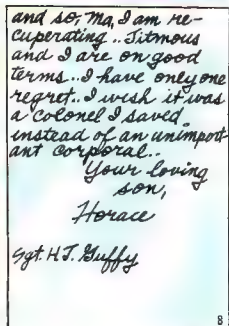 and so, Ma, I am re-
cuperating.. Titmous
and I are on good
terms.. I have only one
regret.. I wish it was
a colonel I saved
instead of an unimport
ant corporal..
Your loving
son,
Horace
Sgt. H.T. Guffy
8